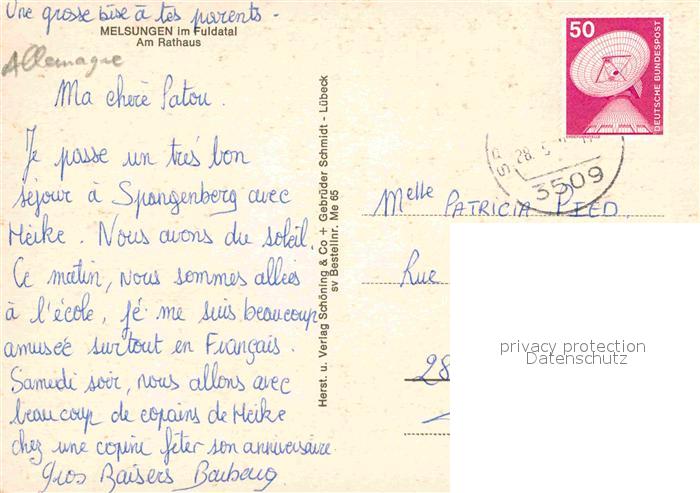 Une grosse bise à tes parents -
MELSUNGEN im Fuldatal
Am Rathaus
Allemagne
Ma chère Patou.
Je passe un très bon
séjour à Spangenberg avec
Heike. Nous avons du soleil.
Ce matin, nous sommes allées
à l'école, je me suis beaucoup
amusée surtout en Français.
Samedi soir, nous allons avec
beaucoup de copains de Heike
chez une copine fêter son anniversaire.
Gros Baisers
Herst. u. Verlag Schöning & Co + Gebrüder Schmidt - Lübeck
sv Bestellnr. Me 65
50
DEUTSCHE BUNDESPOST
28. 5
3509
Melle PATRICIA PIED.
Rue
28
privacy protection
Datenschutz